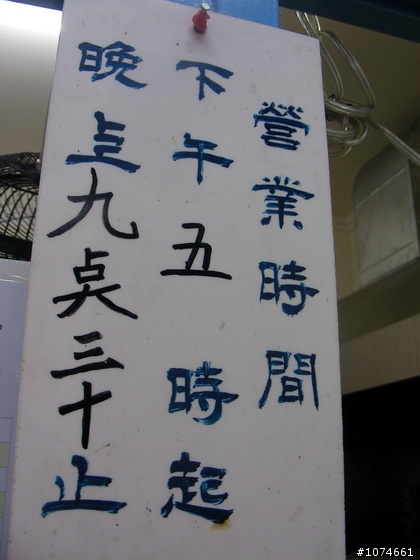 營業時間
下午五時起
晚上九点三十止
#1074661